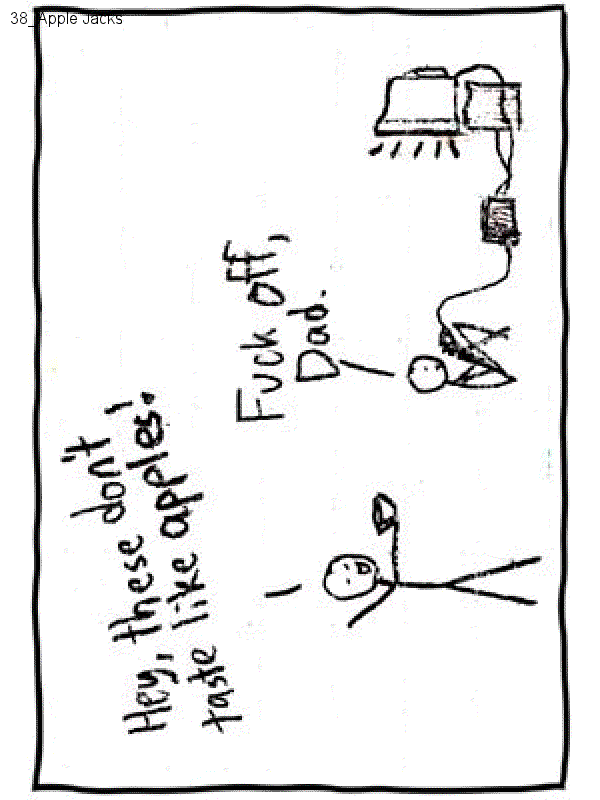 38_Apple Jacks
Hey, these don't
taste like apples!
Fuck off,
Dad.